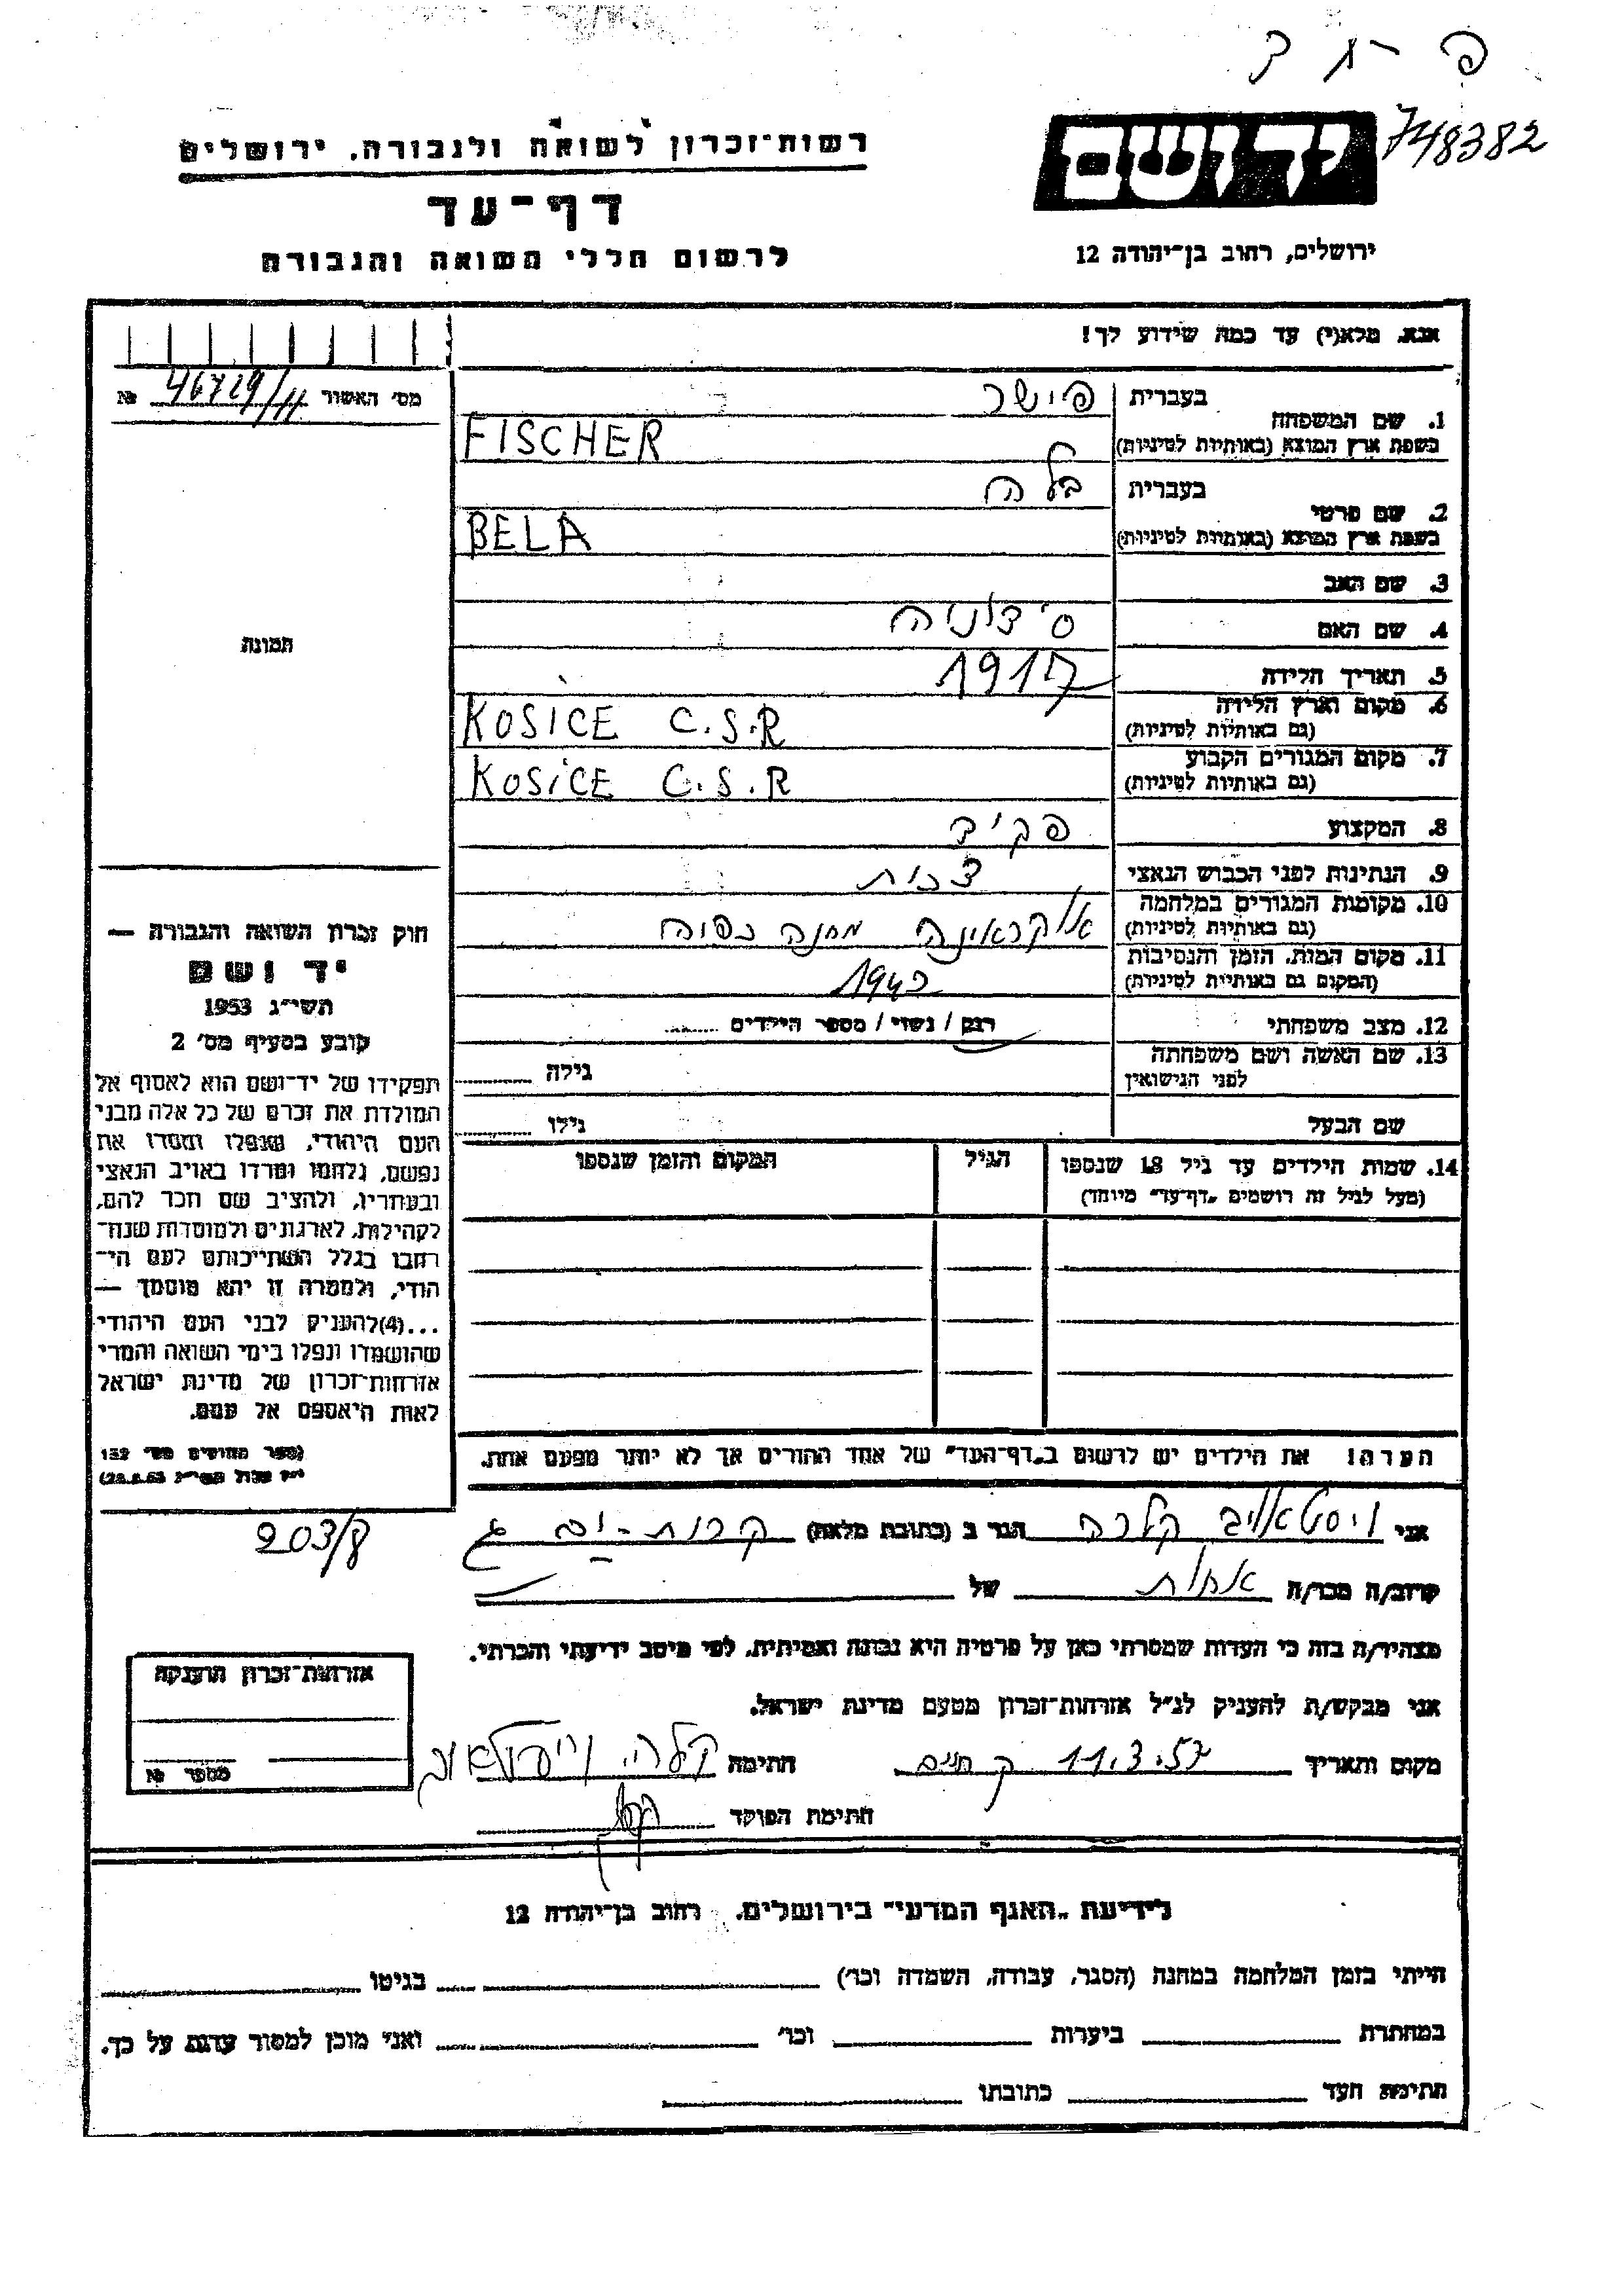 פ - א ד
748382
יד ושם
רשות־זכרון לשואה ולגבורה, ירושלים
דף־עד
לרשום חללי השואה והגבורה
ירושלים, רחוב בן־יהודה 12
אנא, מלא(י) עד כמה שידוע לך!
מס׳ האשור № 46729/11
1. שם המשפחה בעברית פישר
בשפת ארץ המוצא (באותיות לטיניות) FISCHER
2. שם פרטי בעברית בלה
בשפת ארץ המוצא (באותיות לטיניות) BELA
3. שם האב
4. שם האם סידוניה
5. תאריך הלידה 1917
6. מקום וארץ הלידה (גם באותיות לטיניות) KOSICE C.S.R
7. מקום המגורים הקבוע (גם באותיות לטיניות) KOSICE C.S.R
8. המקצוע פקיד
9. הנתינות לפני הכבוש הנאצי צכית
10. מקומות המגורים במלחמה (גם באותיות לטיניות) אוקראינה מחנה כפיה
11. מקום המות, הזמן והנסיבות (המקום גם באותיות לטיניות)
12. מצב משפחתי רווק / נשוי / מספר הילדים
13. שם האשה ושם משפחתה לפני הנישואין גילה
שם הבעל גילו
14. שמות הילדים עד גיל 18 שנספו הגיל המקום והזמן שנספו
(מעל לגיל זה רושמים „דף־עד״ מיוחד)
הערה! את הילדים יש לרשום ב„דף־העד״ של אחד ההורים אך לא יותר מפעם אחת.
תמונה
חוק זכרון השואה והגבורה —
יד ושם
תשי״ג 1953
קובע בסעיף מס׳ 2
תפקידו של יד־ושם הוא לאסוף אל
המולדת את זכרם של כל אלה מבני
העם היהודי, שנפלו ומסרו את
נפשם, נלחמו ומרדו באויב הנאצי
ובעוזריו, ולהציב שם וזכר להם,
לקהילות, לארגונים ולמוסדות שנח־
רבו בגלל השתייכותם לעם הי־
הודי, ולמטרה זו יהא מוסמך —
...(4)להעניק לבני העם היהודי
שהושמדו ונפלו בימי השואה והמרי
אזרחות־זכרון של מדינת ישראל
לאות היאספם אל עמם.
(ספר החוקים מס׳ 132
י״ז אלול תשי״ג 28.8.53)
203/8
אני קלרה הגר ב (כתובת מלאה) קרית-ים ג
קרוב/ה מכר/ה אחות של
מצהיר/ה בזה כי העדות שמסרתי כאן על פרטיה היא נכונה ואמיתית, לפי מיטב ידיעתי והכרתי.
אני מבקש/ת להעניק לנ״ל אזרחות־זכרון מטעם מדינת ישראל.
מקום ותאריך 11.3.57 ק חיים חתימה
חתימת הפוקד
אזרחות־זכרון הוענקה
מספר №
לידיעת „האגף המדעי״ בירושלים, רחוב בן־יהודה 12
הייתי בזמן המלחמה במחנה (הסגר, עבודה, השמדה וכו׳) בגיטו
במחתרת ביערות וכו׳ ואני מוכן למסור עדות על כך.
חתימת העד כתובתו